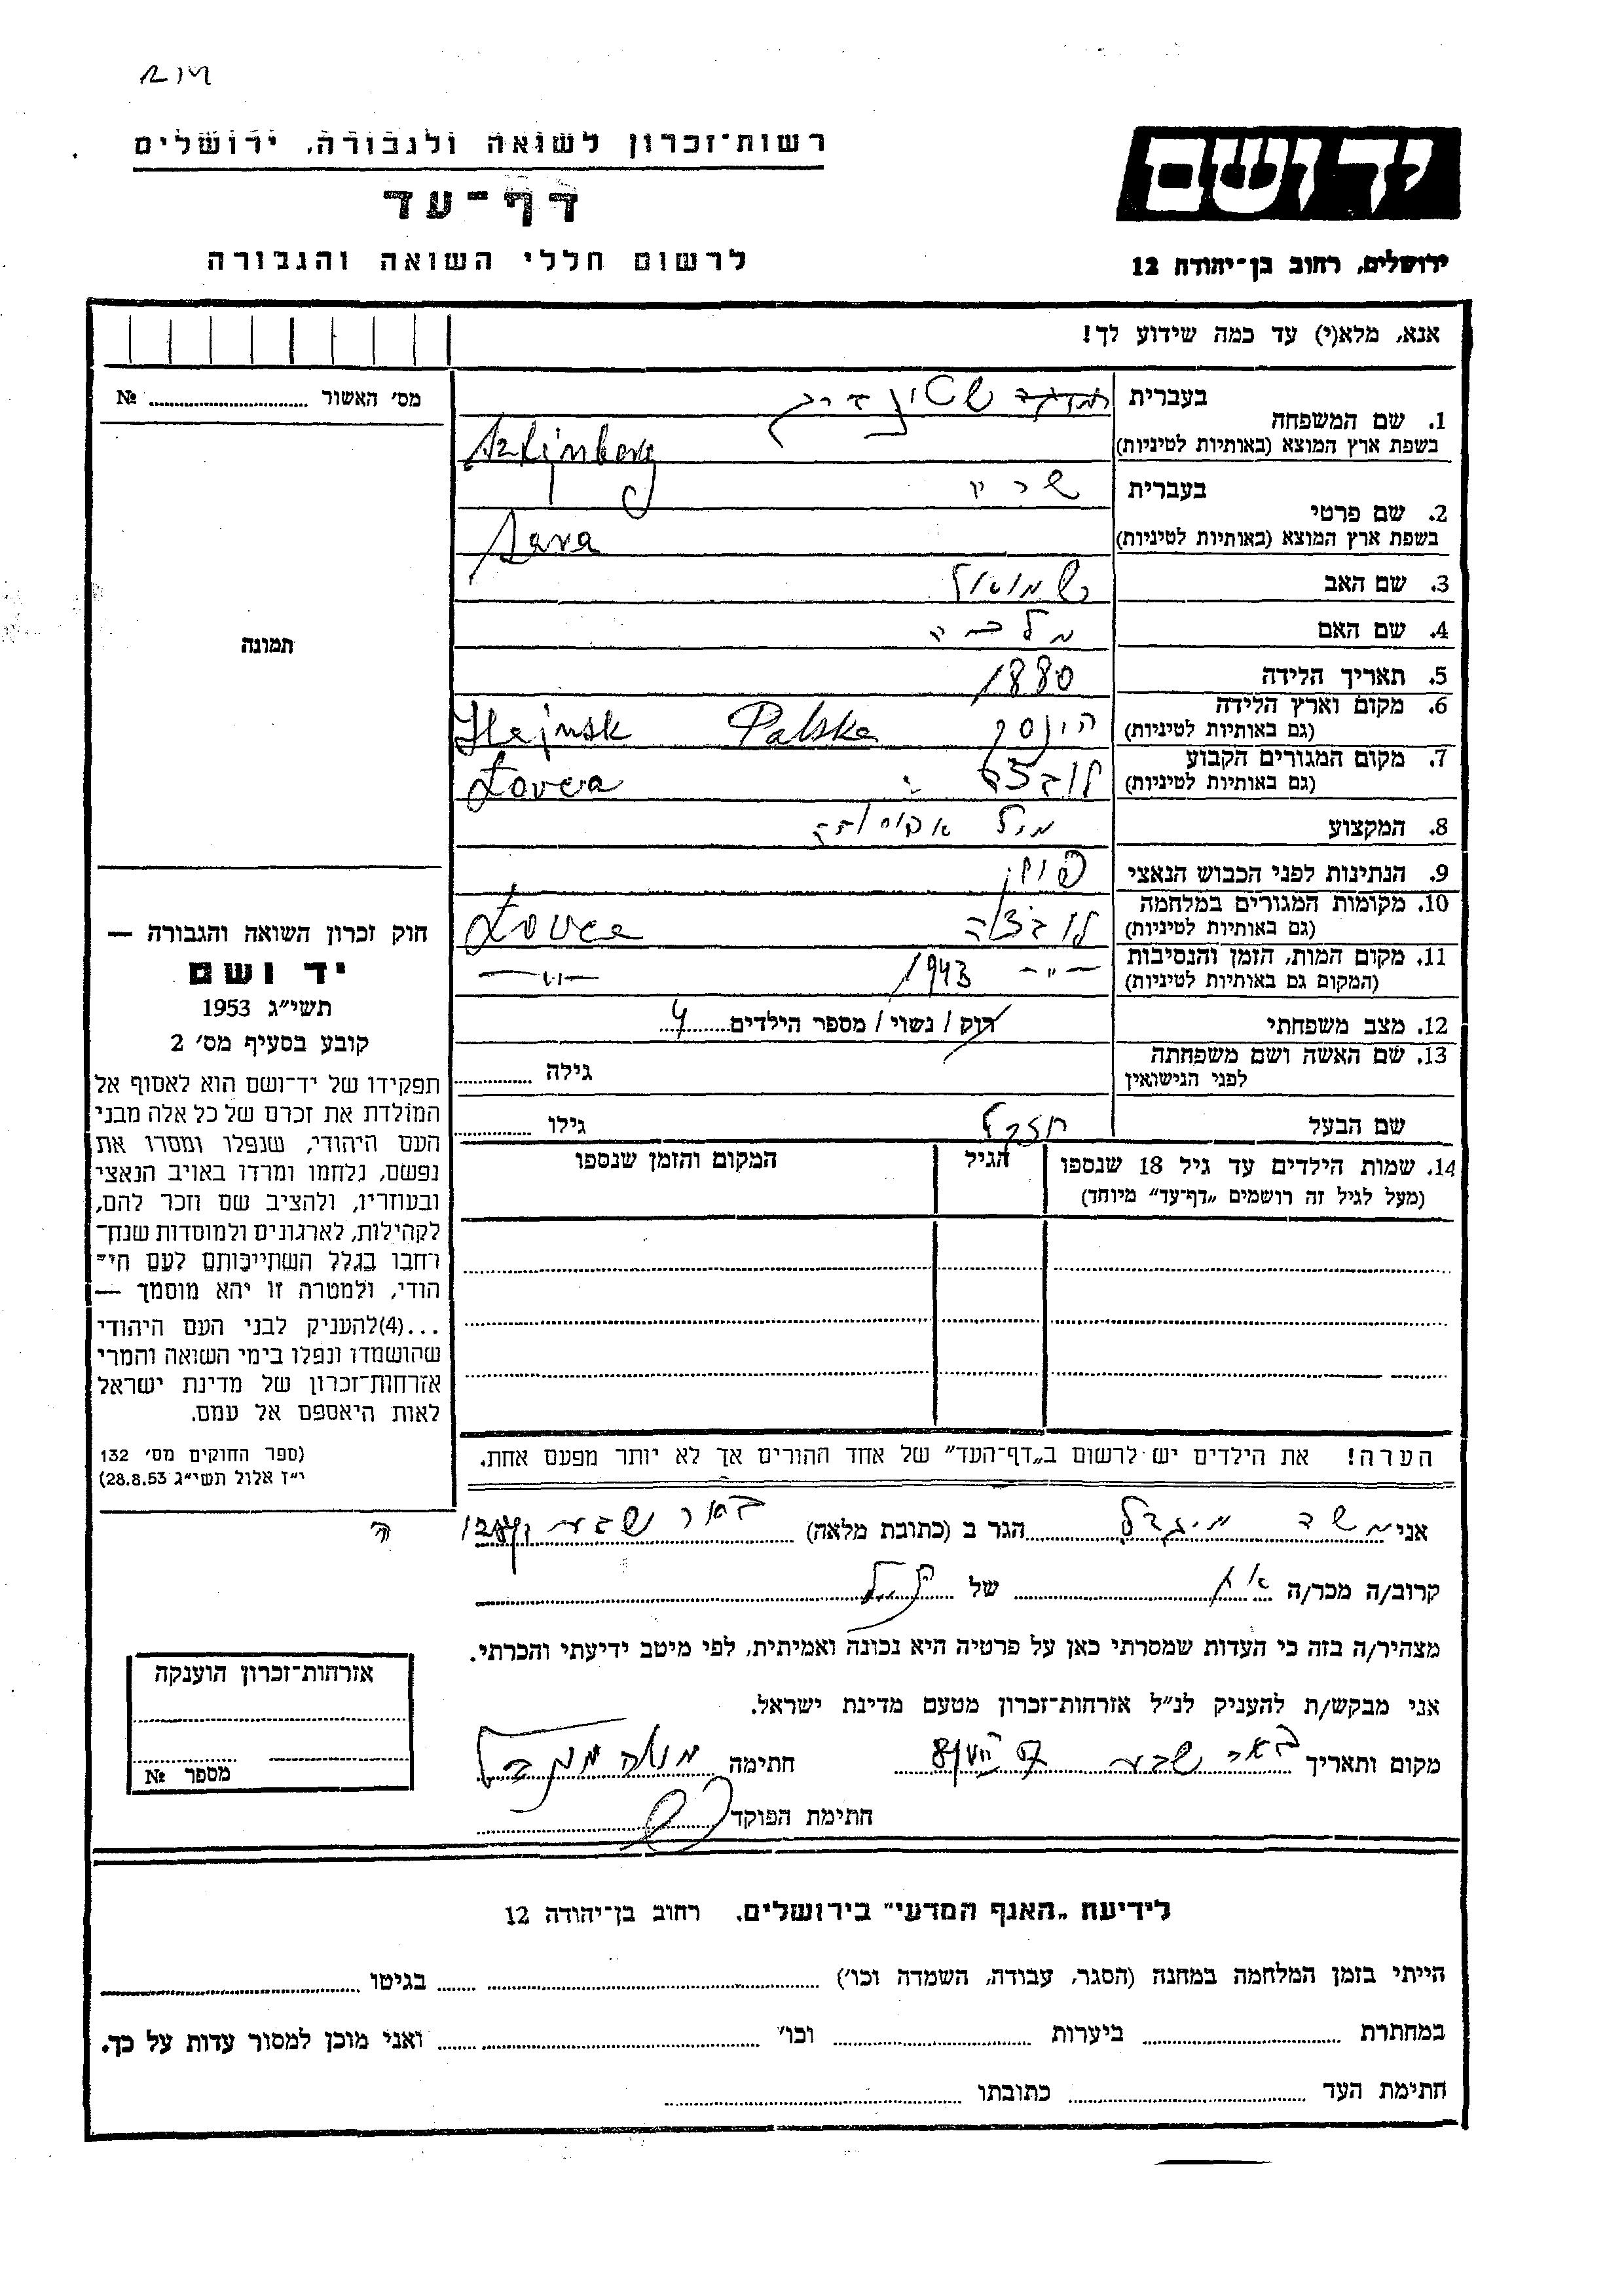 רשות־זכרון לשואה ולגבורה, ירושלים
דף־עד
לרשום חללי השואה והגבורה
יד ושם
ירושלים, רחוב בן־יהודה 12
אנא, מלא(י) עד כמה שידוע לך!
מס׳ האשור № ........
תמונה
1. שם המשפחה
בעברית
בשפת ארץ המוצא (באותיות לטיניות)
2. שם פרטי
בעברית
בשפת ארץ המוצא (באותיות לטיניות)
Sara
3. שם האב שמואל
4. שם האם מלכה
5. תאריך הלידה 1880
6. מקום וארץ הלידה
(גם באותיות לטיניות)
Polska
7. מקום המגורים הקבוע
(גם באותיות לטיניות)
8. המקצוע
9. הנתינות לפני הכבוש הנאצי פולין
10. מקומות המגורים במלחמה
(גם באותיות לטיניות)
11. מקום המות, הזמן והנסיבות
(המקום גם באותיות לטיניות)
—״— 1943 —״—
12. מצב משפחתי רוק / נשוי / מספר הילדים 4
13. שם האשה ושם משפחתה
לפני הנישואין
גילה ........
שם הבעל יחזקאל גילו ........
14. שמות הילדים עד גיל 18 שנספו
(מעל לגיל זה רושמים „דף־עד״ מיוחד)
הגיל
המקום והזמן שנספו
הערה! את הילדים יש לרשום ב„דף־העד״ של אחד ההורים אך לא יותר מפעם אחת.
חוק זכרון השואה והגבורה —
יד ושם
תשי״ג 1953
קובע בסעיף מס׳ 2
תפקידו של יד־ושם הוא לאסוף אל
המולדת את זכרם של כל אלה מבני
העם היהודי, שנפלו ומסרו את
נפשם, נלחמו ומרדו באויב הנאצי
ובעוזריו, ולהציב שם וזכר להם,
לקהילות, לארגונים ולמוסדות שנח־
רחבו בגלל השתייכותם לעם הי־
הודי, ולמטרה זו יהא מוסמך —
...(4)להעניק לבני העם היהודי
שהושמדו ונפלו בימי השואה והמרי
אזרחות־זכרון של מדינת ישראל
לאות היאספם אל עמם.
(ספר החוקים מס׳ 132
י״ז אלול תשי״ג 28.8.53)
אני ........ הגר ב (כתובת מלאה) באר שבע
קרוב/ה מכר/ה ........ של ........
מצהיר/ה בזה כי העדות שמסרתי כאן על פרטיה היא נכונה ואמיתית, לפי מיטב ידיעתי והכרתי.
אני מבקש/ת להעניק לנ״ל אזרחות־זכרון מטעם מדינת ישראל.
מקום ותאריך באר שבע חתימה
חתימת הפוקד
אזרחות־זכרון הוענקה
מספר №
לידיעת „האגף המדעי״ בירושלים, רחוב בן־יהודה 12
הייתי בזמן המלחמה במחנה (הסגר, עבודה, השמדה וכו׳) ........ בגיטו ........
במחתרת ........ ביערות ........ וכו׳ ........ ואני מוכן למסור עדות על כך.
חתימת העד ........ כתובתו ........